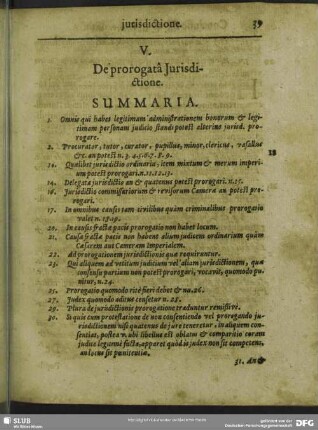 jurisdictione. 39
V.
De prorogatâ Jurisdi-
ctione.
SUMMARIA.
1. Omnis qui habet legitimam administrationem bonorum & legi-
timam personam judicio standi potest alterius jurisd. pro-
rogare.
2. Procurator, tutor, curator, pupillus, minor, clericus, vasallus
&c. an potest n. 3. 4. 5. 6. 7. 8. 9.
10. Quælibet jurisdictio ordinaria, item mixtum & merum imperi-
um potest prorogari. n. 11. 12. 13.
14. Delegata jurisdictio an & quatenus potest prorogari. n. 15.
16. Jurisdictio commissariorum & revisorum Cameræ an potest pro-
rogari.
17. In omnibus causis tam civilibus quàm criminalibus prorogatio
valet n. 18. 19.
20. In causis fractæ pacis prorogatio non habet locum.
21. Causa fractæ pacis non habent alium judicem ordinarium quàm
Cæsarem aut Cameram Imperialem.
22. Ad prorogationem jurisdictionis quæ requirantur.
23. Qui aliquem ad vetitum judicium vel aliam jurisdictionem, quæ
consensu partium non potest prorogari, vocavit, quomodo pu-
nitur, n. 24.
25. Prorogatio quomodo ritè fieri debet & na. 26.
27. Judex quomodo adiisse censetur n. 28.
29. Plura de jurisdictionis prorogatione traduntur remissivè.
30. Si quis cum protestatione de non consentiendo vel prorogando ju-
risdictionem nisi quatenus de jure teneretur, in aliquem con-
sentias, postea v. ubi libellus est oblatus & comparitio coram
judice legitimè facta, apparet quòd is judex non sit competens,
an locus sit pœnitentiæ.
31. An &
SLUB
Wir führen Wissen.
gefördert von der
Deutschen Forschungsgemeinschaft
DFG